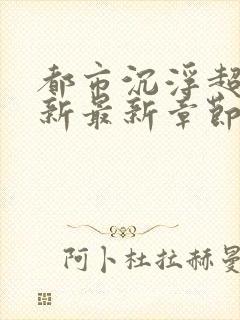 都市沉浮超
新最新章节
阿卜杜拉赫曼